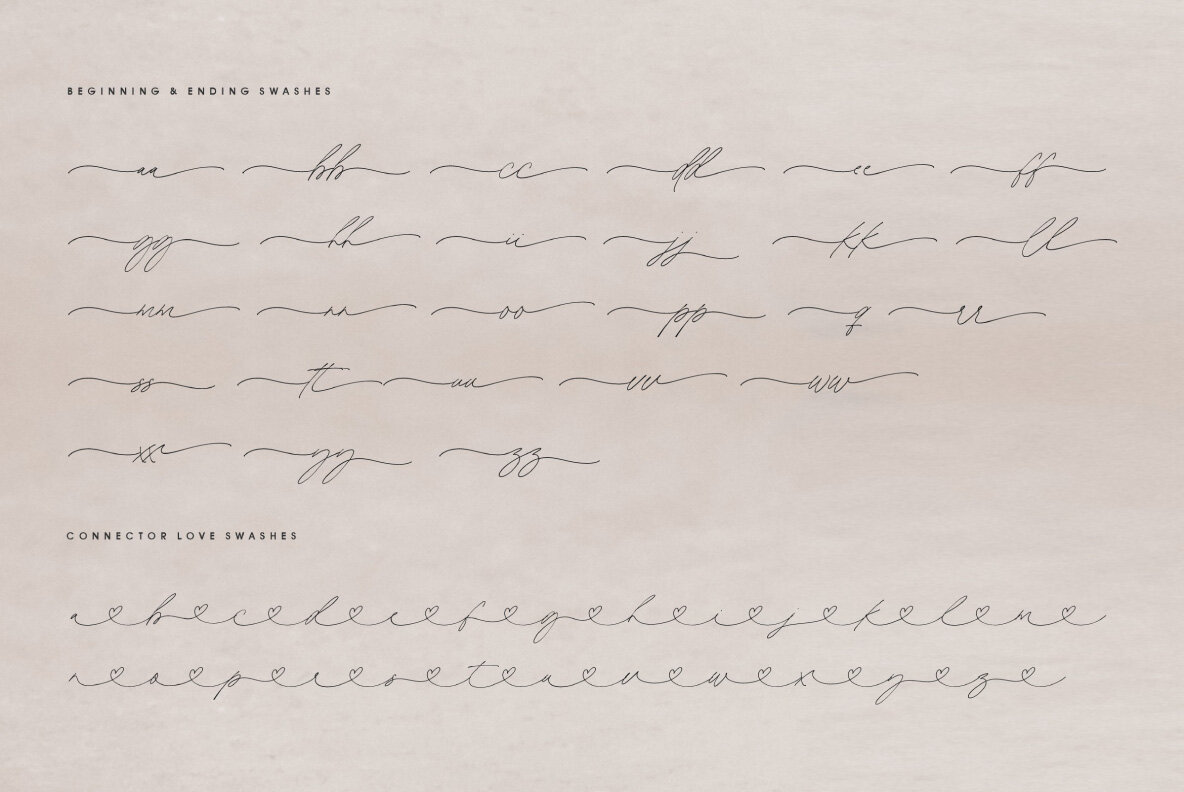 BEGINNING & ENDING SWASHES
aa bb cc dd ee ff
gg hh ii jj kk ll
mm nn oo pp q rr
ss tt uu vv ww
xx yy zz
CONNECTOR LOVE SWASHES
a♡b♡c♡d♡e♡f♡g♡h♡i♡j♡k♡l♡m♡
n♡o♡p♡r♡s♡t♡u♡v♡w♡x♡y♡z♡